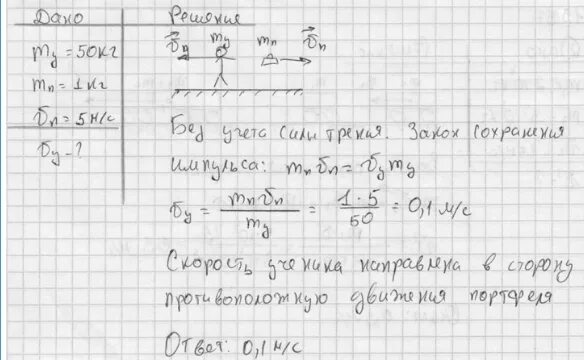 Дано
Решение
m_у = 50кг
m_п = 1кг
v_п = 5м/с
v_у - ?
v_у m_у m_п v_п
Без учета силы трения. Закон сохранения
импульса: m_п v_п = v_у m_у
v_у = m_п v_п / m_у = 1 · 5 / 50 = 0,1 м/с
Скорость ученика направлена в сторону
противоположную движения портфеля
Ответ: 0,1 м/с